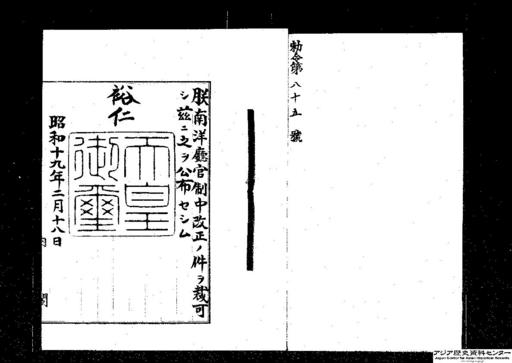 勅令第八十五號
朕南洋廳官制中改正ノ件ヲ裁可
シ茲ニ之ヲ公布セシム
裕仁
天皇御璽
昭和十九年二月十八日
内閣
アジア歴史資料センター
Japan Center for Asian Historical Records